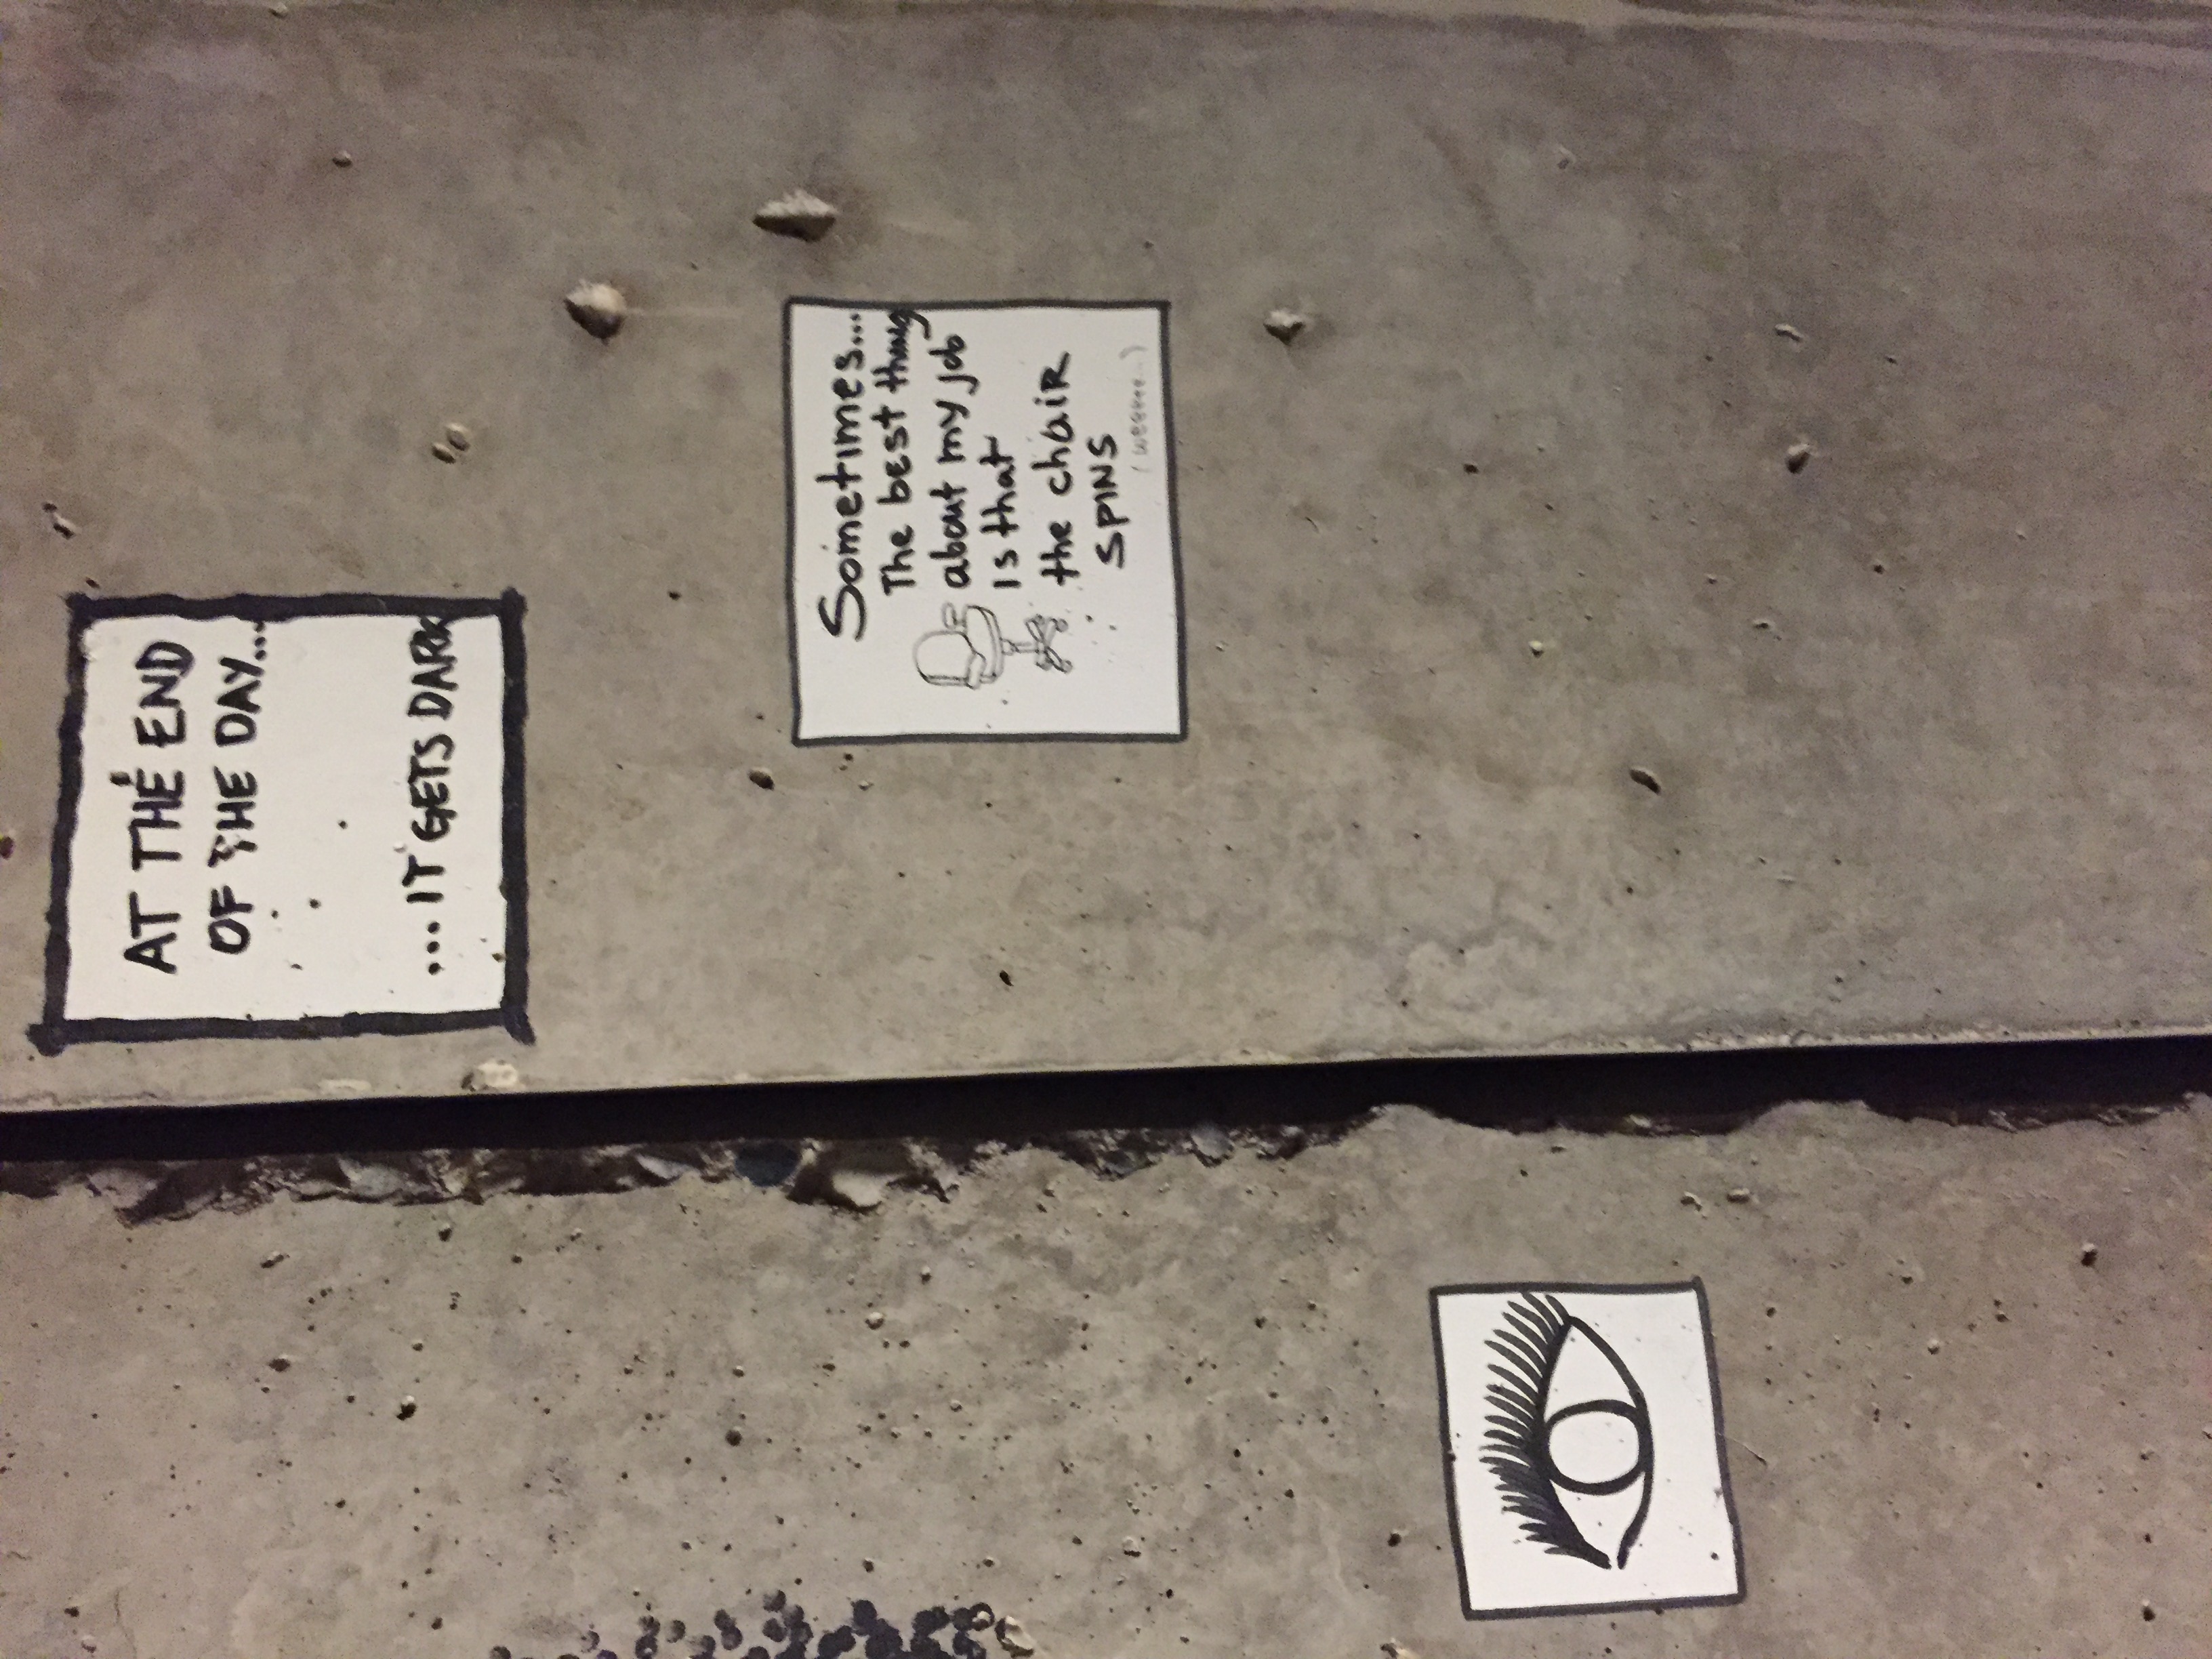 AT THE END
OF THE DAY...
... IT GETS DARK
Sometimes...
The best thing
about my job
is that
the chaiR
SPINS